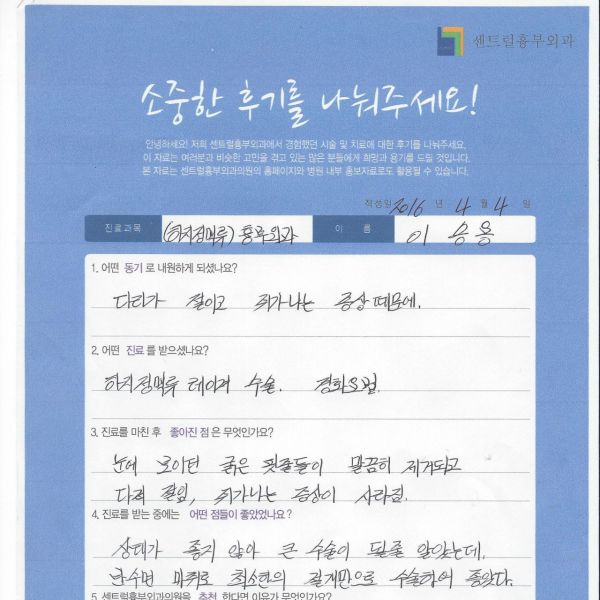 센트럴흉부외과
소중한 후기를 나눠주세요!
안녕하세요! 저희 센트럴흉부외과에서 경험했던 시술 및 치료에 대한 후기를 나눠주세요.
이 자료는 여러분과 비슷한 고민을 겪고 있는 많은 분들에게 희망과 용기를 드릴 것입니다.
본 자료는 센트럴흉부외과의원의 홈페이지와 병원 내부 홍보자료로도 활용될 수 있습니다.
작성일 2016 년 4 월 4 일
진료과목 (하지정맥류) 흉부외과 이 름 이승용
1. 어떤 동기 로 내원하게 되셨나요?
다리가 절이고 쥐가나는 증상때문에.
2. 어떤 진료 를 받으셨나요?
하지정맥류 레이저 수술. 경화요법.
3. 진료를 마친 후 좋아진 점 은 무엇인가요?
눈에 보이던 굵은 핏줄들이 말끔히 제거되고
다리 절임, 쥐가나는 증상이 사라짐.
4. 진료를 받는 중에는 어떤 점들이 좋았었나요?
상태가 좋지 않아 큰 수술이 될줄 알았는데.
반수면 마취로 최소한의 절개만으로 수술하여 좋았다.
5. 센트럴흉부외과의원을 추천 한다면 이유가 무엇인가요?